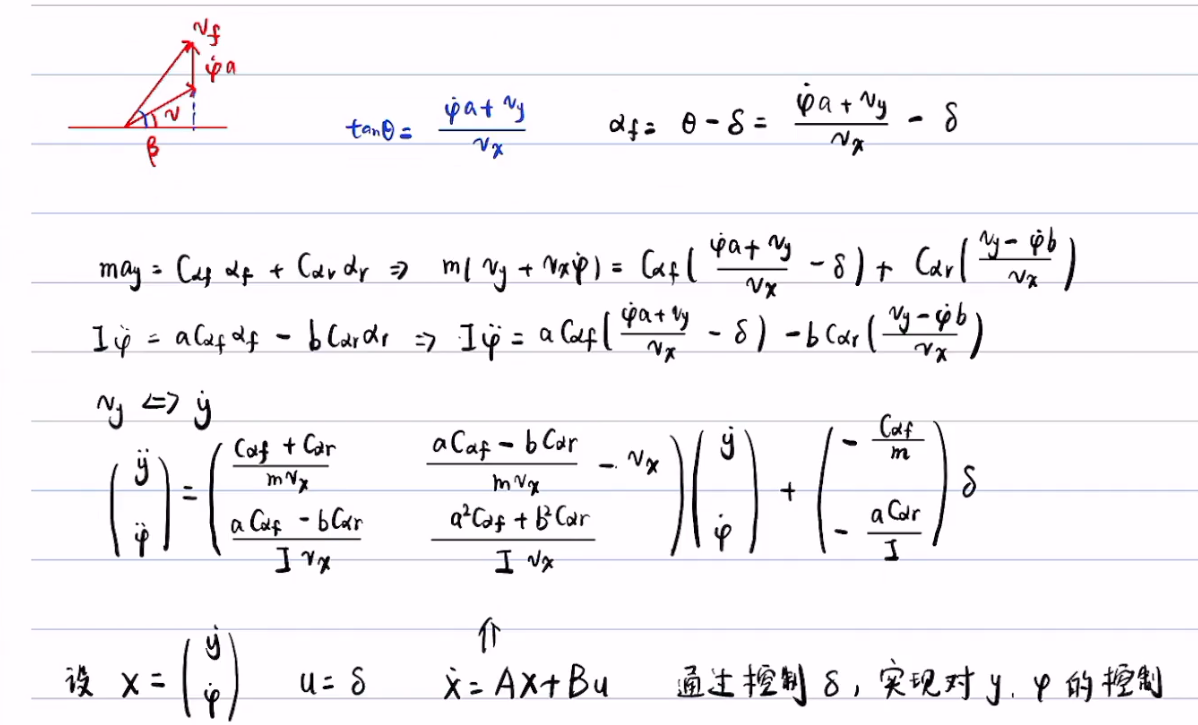 v_f
φ̇a
v
β
tanθ = (φ̇a + v_y)/v_x    α_f = θ - δ = (φ̇a + v_y)/v_x - δ
ma_y = C_αf α_f + C_αr α_r ⇒ m(v_y + v_x φ̇) = C_αf((φ̇a + v_y)/v_x - δ) + C_αr((v_y - φ̇b)/v_x)
Iφ̈ = aC_αf α_f - bC_αr α_r ⇒ Iφ̈ = aC_αf((φ̇a + v_y)/v_x - δ) - bC_αr((v_y - φ̇b)/v_x)
v_y ⇔ ẏ
(ÿ; φ̈) = ((C_αf + C_αr)/(mv_x), (aC_αf - bC_αr)/(mv_x) - v_x; (aC_αf - bC_αr)/(Iv_x), (a²C_αf + b²C_αr)/(Iv_x)) (ẏ; φ̇) + (-C_αf/m; -aC_αr/I) δ
⇑
设 X = (ẏ; φ̇)    u = δ    ẋ = AX + Bu    通过控制 δ, 实现对 y, φ 的控制